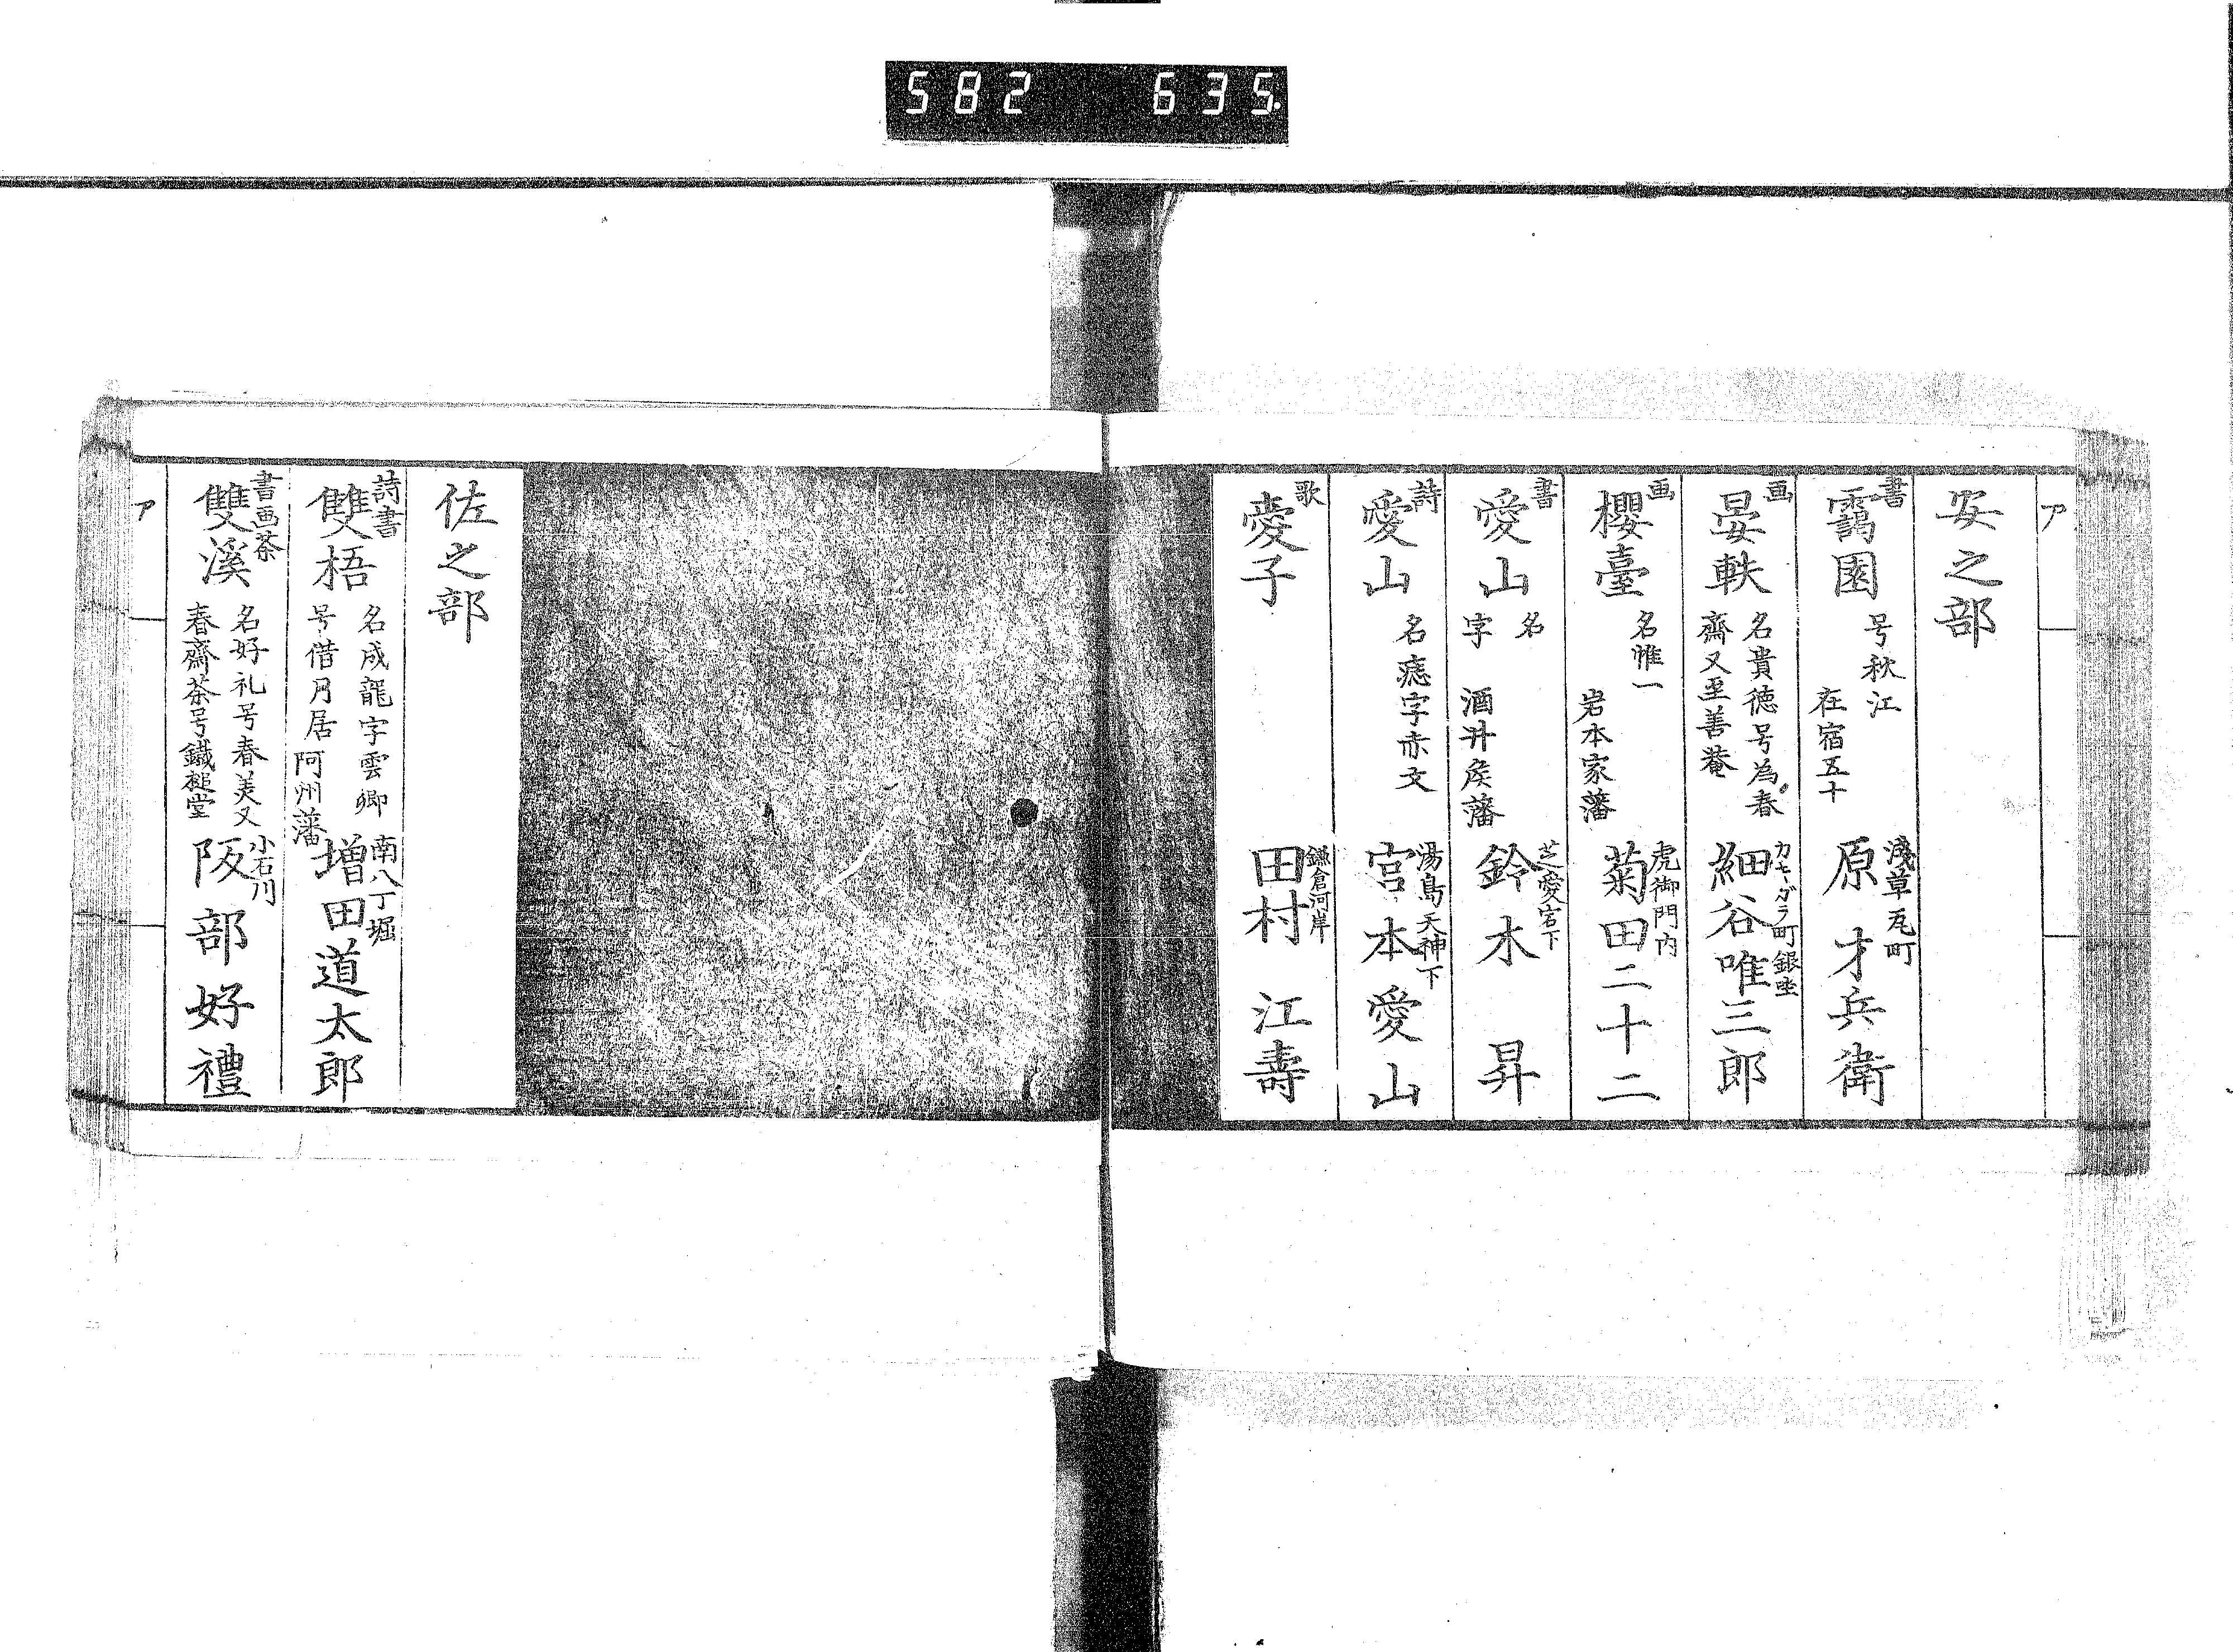 582 635.
ア
安之部
書
靄園
号秋江
在宿五十
淺草瓦町
原才兵衛
画
晏軼
名貴徳号為春
齋又至善菴
カキガラ町銀座
細谷唯三郎
画
櫻臺
名惟一
岩本家藩
虎御門内
菊田二十二
書
愛山
名
字
酒井矦藩
芝愛宕下
鈴木昇
詩
愛山
名 字亦文
湯島天神下
宮本愛山
歌
愛子
鎌倉河岸
田村江壽
佐之部
詩書
雙梧
名成龍字雲卿
号借月居
阿州藩
南八丁堀
増田道太郎
書画茶
雙溪
名好礼号春美又
春齋茶号鐵槌堂
小石川
阪部好禮
ア